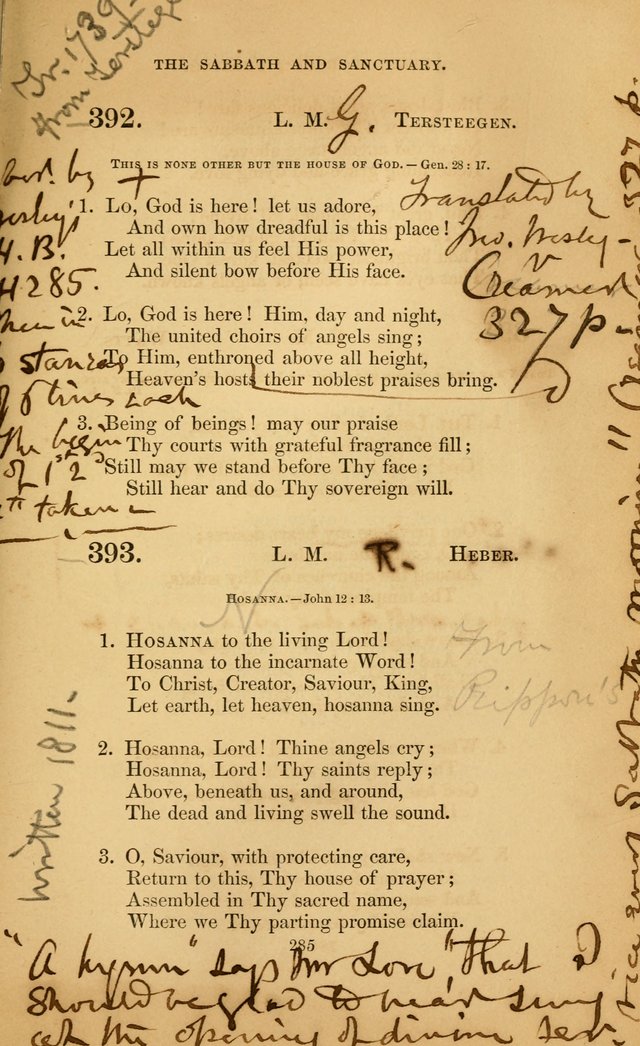 Gr. 1739.
from Tersteeg
THE SABBATH AND SANCTUARY.
392. L. M. G. TERSTEEGEN.
THIS IS NONE OTHER BUT THE HOUSE OF GOD. — Gen. 28 : 17.
1. Lo, God is here! let us adore,
And own how dreadful is this place!
Let all within us feel His power,
And silent bow before His face.
2. Lo, God is here! Him, day and night,
The united choirs of angels sing;
To Him, enthroned above all height,
Heaven's hosts their noblest praises bring.
3. Being of beings! may our praise
Thy courts with grateful fragrance fill;
Still may we stand before Thy face;
Still hear and do Thy sovereign will.
by
H. B.
H 285.
in
stanzas
of 6 lines each
The begin
of 1st 2d
taken
Translated by
Jno. Wesley —
Creamer
327 p.
393. L. M. R. HEBER.
HOSANNA. — John 12 : 13.
1. HOSANNA to the living Lord!
Hosanna to the incarnate Word!
To Christ, Creator, Saviour, King,
Let earth, let heaven, hosanna sing.
2. Hosanna, Lord! Thine angels cry;
Hosanna, Lord! Thy saints reply;
Above, beneath us, and around,
The dead and living swell the sound.
3. O, Saviour, with protecting care,
Return to this, Thy house of prayer;
Assembled in Thy sacred name,
Where we Thy parting promise claim.
From
Rippon's
written 1811.
285
"A hymn" says Mr Love, "that I
should be glad to hear sung
at the opening of divine ser-
vice every Sabbath morning" (Creamer 327 p.